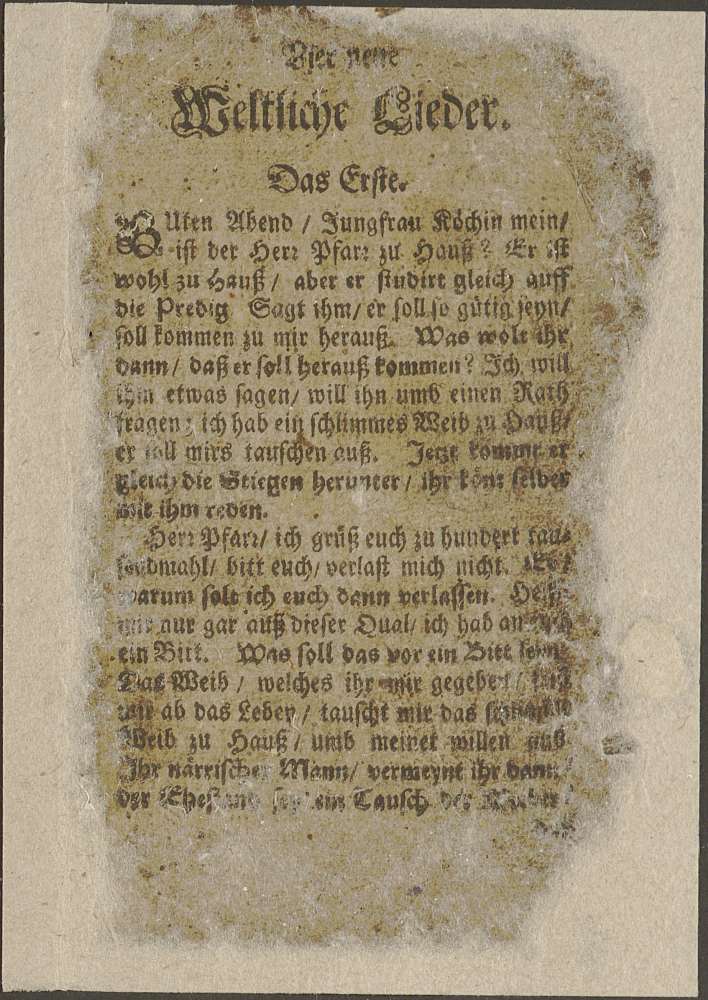 Vier neue
Weltliche Lieder.
Das Erste.
GUten Abend / Jungfrau Köchin mein/
ist der Herr Pfarr zu Hauß? Er ist
wohl zu Hauß / aber er studirt gleich auff
die Predig Sagt ihm/ er soll so gütig seyn/
soll kommen zu mir herauß. Was wolt ihr
dann/ daß er soll herauß kommen? Ich will
ihm etwas sagen/ will ihn umb einen Rath
fragen; ich hab ein schlimmes Weib zu Hauß/
er soll mirs tauschen auß. Jetzt kommt er
gleich die Stiegen herunter/ ihr könt selber
mit ihm reden.
Herr Pfarr/ ich grüß euch zu hundert tau-
sendmahl/ bitt euch/ verlast mich nicht.
warum solt ich euch dann verlassen.
mir nur gar auß dieser Qual/ ich hab an
ein Bitt. Was soll das vor ein Bitt seyn
Das Weib / welches ihr mir gegeben /
mir ab das Leben / tauscht mir das
Weib zu Hauß / umb meinet willen auß
Ihr närrischer Mann/ vermeynt ihr dann/
der Ehestand sey ein Tausch der Weiber